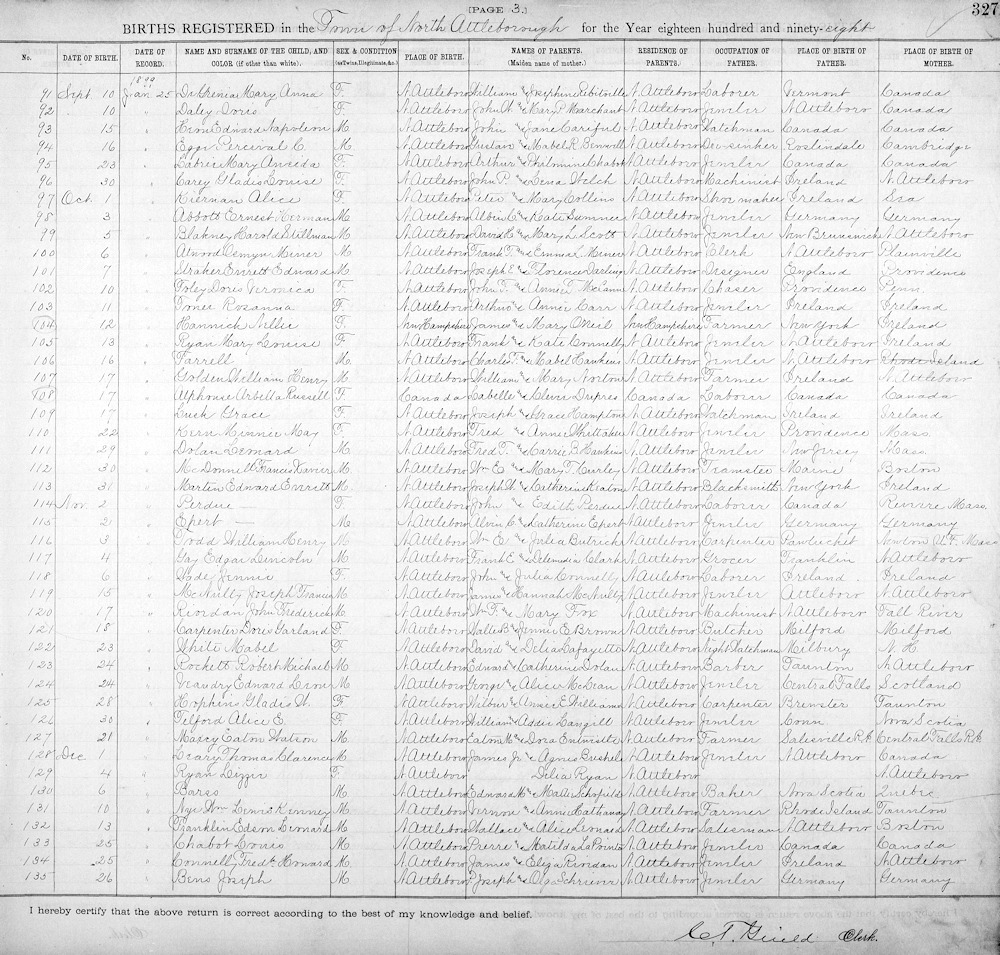 [PAGE 3.]
327
BIRTHS REGISTERED in the Town of North Attleborough for the Year eighteen hundred and ninety-eight
No. DATE OF BIRTH. DATE OF RECORD. NAME AND SURNAME OF THE CHILD, AND COLOR (if other than white). SEX & CONDITION (as Twins, Illegitimate, &c.) PLACE OF BIRTH. NAMES OF PARENTS. (Maiden name of mother.) RESIDENCE OF PARENTS. OCCUPATION OF FATHER. PLACE OF BIRTH OF FATHER. PLACE OF BIRTH OF MOTHER.
1899
91 Sept 10 Jan 25 Mary Anna F. N. Attleboro William & Josephine N. Attleboro Laborer Vermont Canada
92 " 10 " Daley Doris F. N. Attleboro John H & Mary P Marchant N. Attleboro Jeweler N. Attleboro Canada
93 15 " Edward Napoleon M. N. Attleboro John & Jane Careful N. Attleboro Watchman Canada Canada
94 16 " Egge Percival C. M. N. Attleboro Gustav & Mabel R. N. Attleboro Die-sinker Roslindale Cambridge
95 23 " Labrie Mary F. N. Attleboro Arthur & Philomine Chabot N. Attleboro Jeweler Canada Canada
96 30 " Carey Gladis Louise F. N. Attleboro John P. & Lena Welch N. Attleboro Machinist Ireland N. Attleboro
97 Oct. 1 " Kiernan Alice F. N. Attleboro Peter & Mary Collins N. Attleboro Shoe maker Ireland Sea
98 3 " Abbott Ernest Herman M. N. Attleboro Albin C. & Kate Sumner N. Attleboro Jeweler Germany Germany
99 5 " Blakney Harold Stillman M. N. Attleboro David H. & Mary L Scott N. Attleboro Jeweler New Brunswick N. Attleboro
100 6 " Atwood Miner M. N. Attleboro Frank F. & Emma L Miner N. Attleboro Clerk N. Attleboro Plainville
101 7 " Straker Everett Edward M. N. Attleboro Joseph E. & Florence Darling N. Attleboro Designer England Providence
102 10 " Foley Doris Veronica F. N. Attleboro John F. & Annie T. McCann N. Attleboro Chaser Providence Penn.
103 11 " Rosanna F. N. Attleboro Arthur & Annie Carr N. Attleboro Jeweler Ireland Ireland
104 12 " Nellie F. New Hampshire James & Mary O'Neil New Hampshire Farmer New York Ireland
105 13 " Ryan Mary Louise F. N. Attleboro Frank & Kate Connelly N. Attleboro Jeweler N. Attleboro Ireland
106 16 " Farrell M. N. Attleboro Charles F. & Mabel Hawkins N. Attleboro Jeweler N. Attleboro Rhode Island
107 17 " Golden William Henry M. N. Attleboro William & Mary Norton N. Attleboro Farmer Ireland N. Attleboro
108 17 " Alphonse Arbella Russell F. Canada Labelle & Dupres Canada Laborer Canada Canada
109 17 " Lusk Grace F. N. Attleboro Joseph & Grace Hampton N. Attleboro Watchman Ireland Ireland
110 22 " Kern Minnie May F. N. Attleboro Fred & Annie Whittaker N. Attleboro Jeweler Providence Mass.
111 29 " Dolan Leonard M. N. Attleboro Fred F. & Carrie B. Hawkins N. Attleboro Jeweler New Jersey Mass
112 30 " McDonnell Francis Xavier M. N. Attleboro Wm E. & Mary T. Hurley N. Attleboro Teamster Maine Boston
113 31 " Martin Edward Everett M. N. Attleboro Joseph W. & Catherine N. Attleboro Blacksmith New York Ireland
114 Nov. 2 " Perdue — F. N. Attleboro John & Edith Perdue N. Attleboro Laborer Canada Revere Mass.
115 21 " Epert — M. N. Attleboro Alvin C. & Katherine Epert N. Attleboro Jeweler Germany Germany
116 3 " Todd William Henry M. N. Attleboro Wm E. & Julia N. Attleboro Carpenter Pawtucket Newton U. F. Mass
117 4 " Gay Edgar Lincoln M. N. Attleboro Frank E. & Clark N. Attleboro Grocer Franklin N. Attleboro
118 6 " Wade Jennie F. N. Attleboro John & Julia Connelly N. Attleboro Laborer Ireland Ireland
119 15 " McNally Joseph Francis M. N. Attleboro James & Hannah McNulty N. Attleboro Jeweler Attleboro N. Attleboro
120 17 " Riordan John Frederick M. N. Attleboro Wm F. & Mary Fox N. Attleboro Machinist N. Attleboro Fall River
121 18 " Carpenter Doris Garland F. N. Attleboro Walter B & Jennie E Brown N. Attleboro Butcher Milford Milford
122 23 " White Mabel F. N. Attleboro David & Delia Lafayette N. Attleboro Night Watchman Milbury N. H.
123 24 " Rockett Robert Michael M. N. Attleboro Edward & Catherine Dolan N. Attleboro Barber Taunton N. Attleboro
124 24 " Edward Leon M. N. Attleboro George & Alice McLean N. Attleboro Jeweler Central Falls Scotland
125 28 " Hopkins Gladis W. F. N. Attleboro Wilbur & Annie E Williams N. Attleboro Carpenter Brewster Taunton
126 30 " Telford Alice E. F. N. Attleboro William & Addie Langill N. Attleboro Jeweler Conn. Nova Scotia
127 21 " Maxcy Eaton Watson M. N. Attleboro Eaton M. & Dora N. Attleboro Farmer Saylesville R.I. Central Falls R.I.
128 Dec 1 " Leary Thomas Clarence M. N. Attleboro James Jr & Agnes N. Attleboro Jeweler N. Attleboro Canada
129 4 " Ryan Lizzie F. N. Attleboro Delia Ryan N. Attleboro N. Attleboro
130 6 " Barss M. N. Attleboro Edward M. & Schofield N. Attleboro Baker Nova Scotia Quebec
131 10 " Nye Wm Lewis Kinney M. N. Attleboro Vernon & Anne Hathaway N. Attleboro Farmer Rhode Island Taunton
132 13 " Franklin Edson Leonard M. N. Attleboro Wallace & Alice Leonard N. Attleboro Salesman N. Attleboro Boston
133 25 " Chabot Louis M. N. Attleboro Pierre & Matilda LaPointe N. Attleboro Jeweler Canada Canada
134 25 " Connelly Fredk Howard M. N. Attleboro James & Eliza Riordan N. Attleboro Jeweler Ireland N. Attleboro
135 26 " Bens Joseph M. N. Attleboro Joseph & Olga N. Attleboro Jeweler Germany Germany
I hereby certify that the above return is correct according to the best of my knowledge and belief.
Clerk.